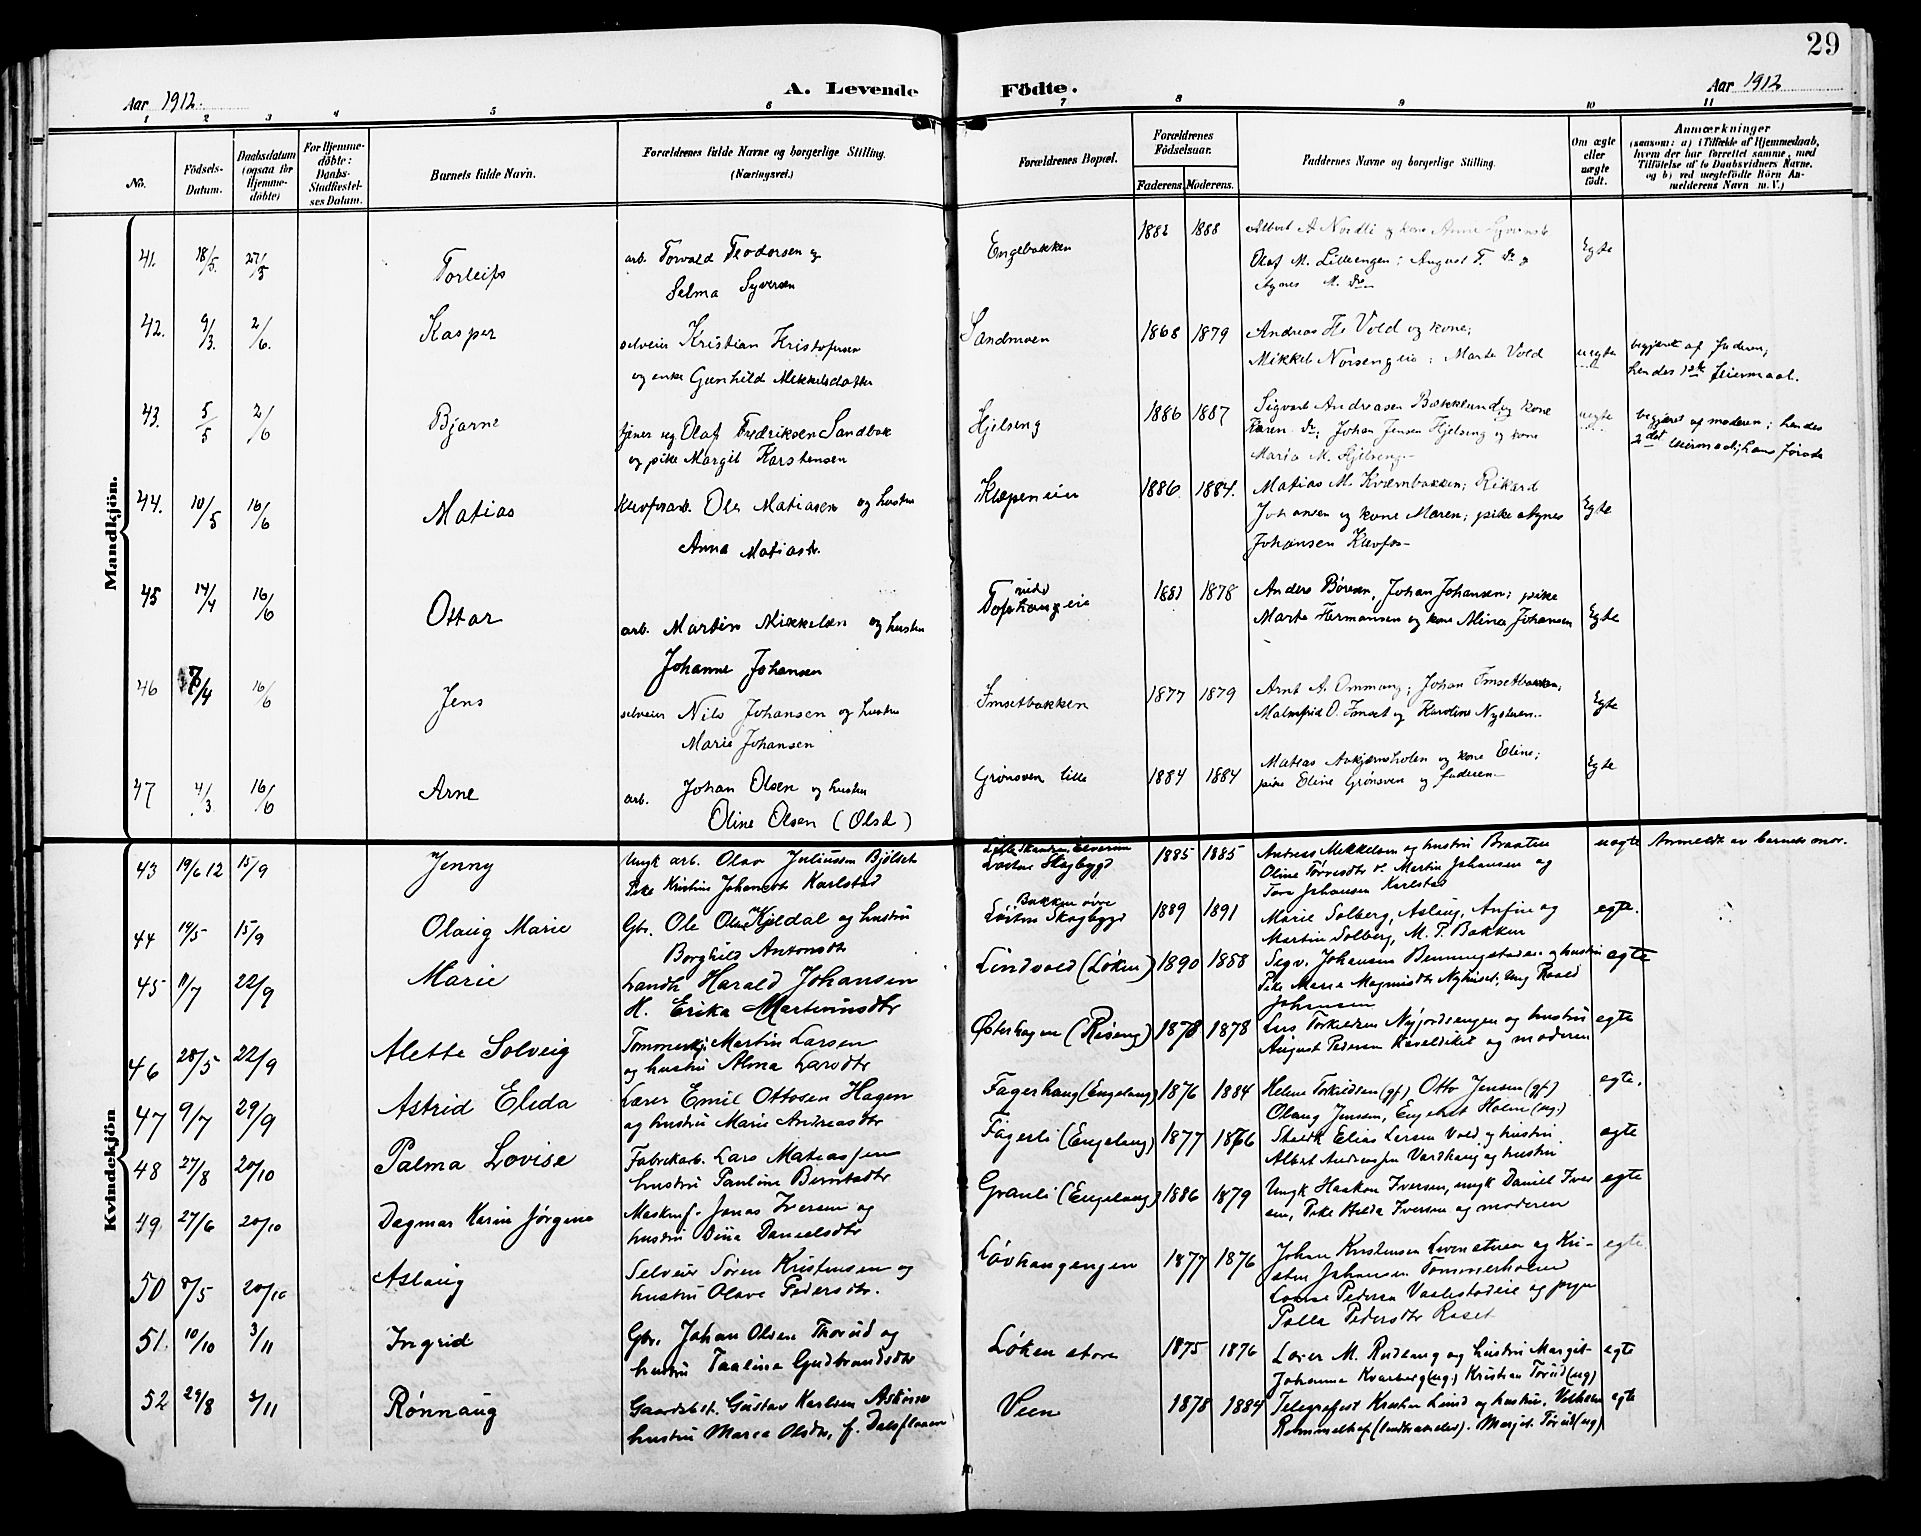 29
Aar 1912.
A. Levende
Födte.
Aar 1912
1 2 3 4 5 6 7 8 9 10 11
No.
Födsels-
Datum.
Daabsdatum
(ogsaa for
Hjemme-
döbte)
For Hjemme-
döbte:
Daabs-
Stadfæstel-
ses Datum.
Barnets fulde Navn.
Forældrenes fulde Navne og borgerlige Stilling.
(Næringsvei.)
Forældrenes Bopæl.
Forældrenes
Födselsaar.
Faderens. Moderens.
Faddernes Navne og borgerlige Stilling.
Om ægte
eller
uægte
födt.
Anmærkninger
(saasom: a) i Tilfælde af Hjemmedaab,
hvem der har forrettet samme, med
Tilföielse af to Daabsvidners Navne.
og b) ved uægtefödte Börn An-
melderens Navn m. V.)
Mandkjön.
41. 18/5. 27/5 Torleif arb. Torvald Teodorsen og
Selma Syversen
Engebakken 1882 1888 Albert A Nordli og kone Anne
Olaf M. Lilleengen; August T. do og
Agnes M. do
Egte
42. 9/3. 2/6. Kasper selveier Kristian Kristofersen
og enke Gunhild Mikkelsdatter
Sandmoen 1868 1879 Andreas H. Vold og kone;
Mikkel Norsengeie; Marte Vold
uegte
begjæret af faderen;
hendes 1ste leiermaal.
43. 5/5 2/6 Bjarne tjener ug. Olaf Fredriksen Sandbak
og pike Margit Karstensen
Hjelseng 1886 1887 Sigvart Andreasen Bækklund og kone
Karen do; Johan Jensen Hjelseng og kone
Maria M. Hjelseng
uegte
begjæret af moderen; hendes
2det leiermaal; hans første
44. 10/5 16/6 Matias Klevfosarb. Ole Matiasen og hustru
Anna Matiasdtr.
Klæpeneie 1886. 1884. Matias M. Kværnbakken; Rikard
Johansen og kone Maren; pike Agnes
Johansen Klevfos
Egte
45 14/4 16/6 Ottar arb. Martin Mikkelsen og hustru
Johanne Johansen
nedr
Tophaugeie 1881 1878 Anders Børesen, Johan Johansen; pike
Marte Hermansen og kone Alina Johansen
Egte
46 7/4 16/6 Jens selveier Nils Johansen og hustru
Marie Johansen
Imsetbakken 1877 1879 Arnt A. Ommang; Johan Imsetbakken;
Malmfrid O. Imset og Karoline Nysteen
Egte
47 4/3 16/6 Arne arb. Johan Olsen og hustru
Oline Olsen (Olsd)
Grønsven lille 1884 1884 Matias Avkjernsholen og kone Eline;
pike Eline Grønsven og faderen
Egte
Kvindekjön
43 19/6 12 15/9 Jenny Ungk arb. Olav Juliussen Bjølset
Pike Kristine Johansdtr Karlstad
Løiten Skogbygd 1885 1885 Andreas Mikkelsen og hustru Braaten
Oline Torvesdtr do. Martin Johansen og
Tora Johansen Karlstad
uegte Anmeldt av barnets mor.
44 14/5 15/9 Olaug Marie Gbr. Ole Olsen Kjeldal og hustru
Borghild Antonsdtr
Bakken øvre
Løiten Skogbygd 1889 1891 Marie Solberg, Aslaug, Anfin og
Martin Solberg, M. P. Bakken
egte.
45 11/7 22/9 Marie Landh. Harald Johansen
H. Erika Martinusdtr
Lindvold (Løken) 1890 1888 Segv. Johansen Benningstadeie og hustru
Pike Marie Magnusdtr Nyhuset, Ung Roald
Johansen
egte
46 28/5 22/9 Alette Solveig Tømmerkj. Martin Larsen
og hustru Alma Larsdtr
Østerhagen (Røseng) 1878 1878 Lars Torkildsen Nyjordsengen og hustru
August Pedersen Kaveldiket og moderen
egte
47 9/7 29/9 Astrid Elida Lærer Emil Ottosen Hagen
og hustru Marie Andreasdtr
Fagerhaug (Engelaug) 1876 1884 Helene Torkildsen (gf) Otto Jensen (gf)
Olaug Jensen, Engebret Holm (ug.)
egte.
48 27/8 20/10 Palma Lovise Fabrikarb. Lars Matiassen
hustru Pauline Berntsdtr
Fagerli (Engelaug) 1877 1876 Elias Larsen Vold og hustru.
Albert Andreassen Vardhaug og hustru
egte
49. 27/6 20/10 Dagmar Karin Jørgine Maskinf. Jonas Iversen og
hustru Dina Danielsdtr
Granli (Engelaug) 1886 1879 Ungk Haakon Iversen, ungk Daniel Iver
sen, Pike Hilda Iversen og moderen
egte
50 8/5 20/10 Aslaug Selveier Søren Kristensen og
hustru Olava Pedersdtr.
Løvhaugengen 1877 1876 Johan Kristensen Løvenstuen og Kri-
sten Johansen Tommerholen
Lovise Pedersen Vaalestadeie og pigen
Palla Pedersdtr Roset
egte.
51. 10/10 3/11 Ingrid Gbr. Johan Olsen Thorud og
hustru Taalina Gudbrandsdtr
Løken store 1875 1876 Lærer M. Rudlang og hustru Margit
Johanna Kvarberg (ug) Kristian Torud (ug)
egte
52 29/8 3/11 Rønnaug Gaardsbst. Gustav Karlsen
hustru Maria Olsdtr, f. Dalsflaaen
Veen 1878 1884 Telegrafest Kristian Lund og hustru.
Margit Torud (ug)
egte